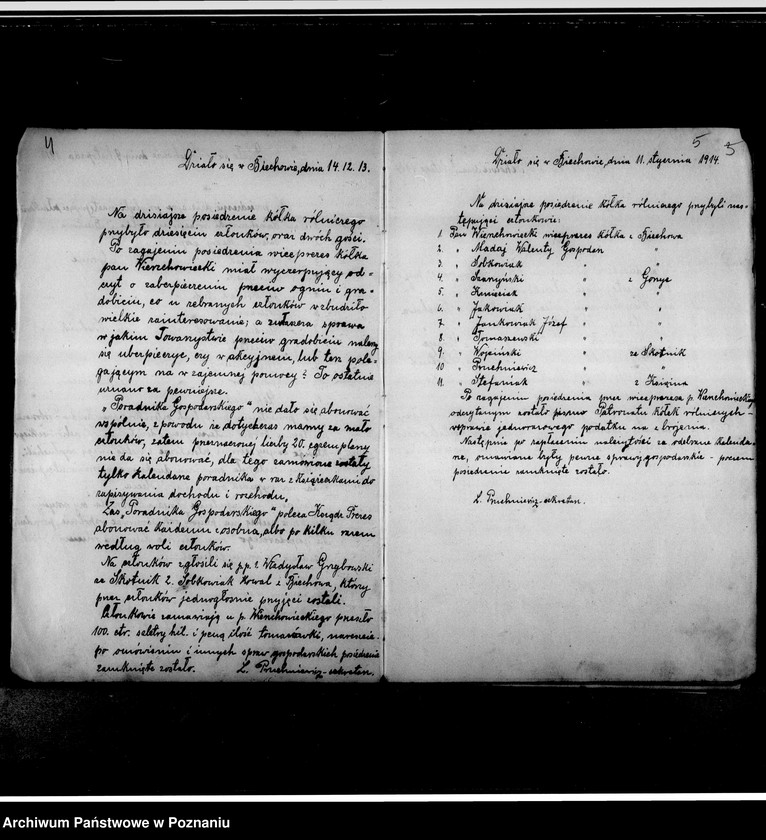 4
Działo się w Biechowie, dnia 14.12.13.
Na dzisiajsze posiedzenie kółka rólniczego
przybyło dziesięciu członków, oraz dwóch gości.
Po zagajeniu posiedzenia wiceprezes kółka
pan Wierzchowiecki miał wyczerpujący od-
czyt o zabezpieczeniu przeciw ogniu i gra-
dobiciu, co u zebranych członków wzbudziło
wielkie zainteresowanie; a zwłaszcza sprawa
w jakim Towarzystwie przeciw gradobiciu należy
się ubezpieczyć, czy w akcyjnem, lub też pole-
gającym na wzajemnej pomocy? To ostatnie
uznano za pewniejsze.
„Poradnika Gospodarskiego" nie dało się abonować
wspólnie, z powodu że dotychczas mamy za mało
członków, zatem przeznaczonej liczby 20. egzemplarzy
nie da się abonować, dla tego zamówione zostały
tylko kalendarze poradnika w raz z książeczkami do
zapisywania dochodu i rozchodu.
Zaś „Poradnika Gospodarskiego" poleca Ksiądz Prezes
abonować każdemu z osobna, albo po kilku razem
według woli członków.
Na członków zgłosili się p.p. 1. Władysław Grzybowski
ze Skotnik 2. Sobkowiak Kowal z Biechowa, którzy
przez członków jednogłośnie przyjęci zostali.
Członkowie zamawiają u p. Wierzchowieckiego przeszło
100. ctr. saletry i pewną ilość tomasówki, nareszcie
po omówieniu i innych spraw gospodarskich posiedzenie
zamknięte zostało. L. Pruchniewicz-sekretarz.
5 5
Działo się w Biechowie, dnia 11. stycznia 1914.
Na dzisiajsze posiedzenie kółka rólniczego przybyli nas-
tępujący członkowie:
1. Pan Wierzchowiecki wiceprezes kółka z Biechowa
2. " Madaj Walenty Gospodarz "
3. " Sobkowiak " "
4. " Szaszyński " z Gonyc
5. " " "
6. " Jakowiak " "
7. " Jankowiak Józef " "
8. " Tomaszewski " "
9. " Wojciński " ze Skotnik
10. " Pruchniewicz " "
11. " Stefaniak " z
Po zagajeniu posiedzenia przez wiceprezesa p. Wierzchowieckiego
odczytanym zostało pismo Patronatu Kółek rólniczych -
wsprawie jednorazowego podatku na zbrojenia.
Następnie po zapłaceniu należytości za odebrane kalenda-
rze, omawiane były pewne sprawy gospodarskie - poczem
posiedzenie zamknięte zostało.
L. Pruchniewicz-sekretarz.
Archiwum Państwowe w Poznaniu